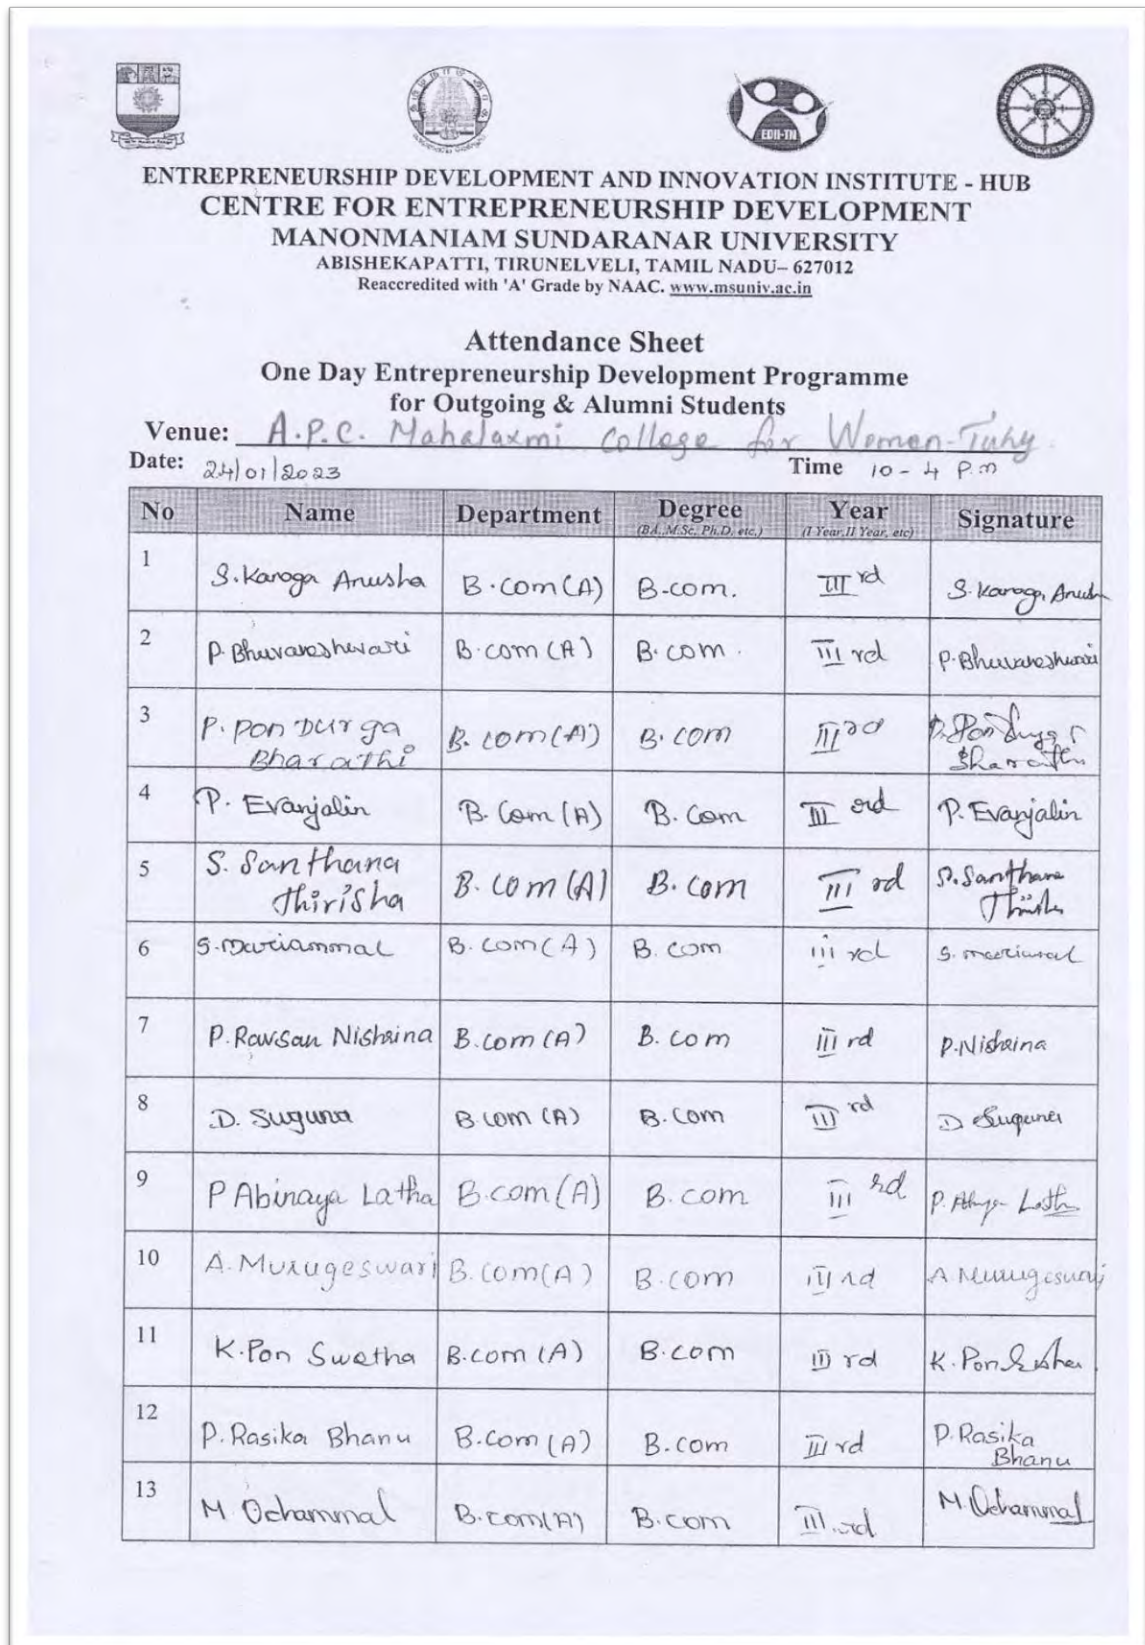 EDII-TN
ENTREPRENEURSHIP DEVELOPMENT AND INNOVATION INSTITUTE - HUB
CENTRE FOR ENTREPRENEURSHIP DEVELOPMENT
MANONMANIAM SUNDARANAR UNIVERSITY
ABISHEKAPATTI, TIRUNELVELI, TAMIL NADU– 627012
Reaccredited with 'A' Grade by NAAC. www.msuniv.ac.in
Attendance Sheet
One Day Entrepreneurship Development Programme
for Outgoing & Alumni Students
Venue: A.P.C. Mahalaxmi College for Women-Tuty
Date: 24/01/2023 Time 10 - 4 P.m
No Name Department Degree Year Signature
(BA, M.Sc, Ph.D, etc,) (I Year,II Year, etc)
1 S.Karoga Anusha B.com(A) B.com. III rd S. Karoga Anush
2 P. Bhuvaneshwari B.com(A) B.com. III rd P. Bhuvaneshwari
3 P. Pon Durga B.com(A) B.com III rd P. Pon Durga
Bharathi Bharathi
4 P. Evanjalin B.Com(A) B.Com III rd P. Evanjalin
5 S. Santhana B.Com(A) B.Com III rd S. Santhana
Thirisha
6 S.Mariammal B.com(A) B.com III rd S. mariammal
7 P. Rawsan Nishrina B.com(A) B.com III rd P.Nishrina
8 D. Suguna B.com(A) B.Com III rd D Suguna
9 P Abinaya Latha B.com(A) B.com III rd P. Latha
10 A. Murugeswari B.com(A) B.com III rd A Murugeswari
11 K.Pon Swetha B.com(A) B.com III rd K. Pon
12 P. Rasika Bhanu B.Com(A) B.com III rd P. Rasika
Bhanu
13 M. Ochammal B.com(A) B.com III.rd M. Ochammal